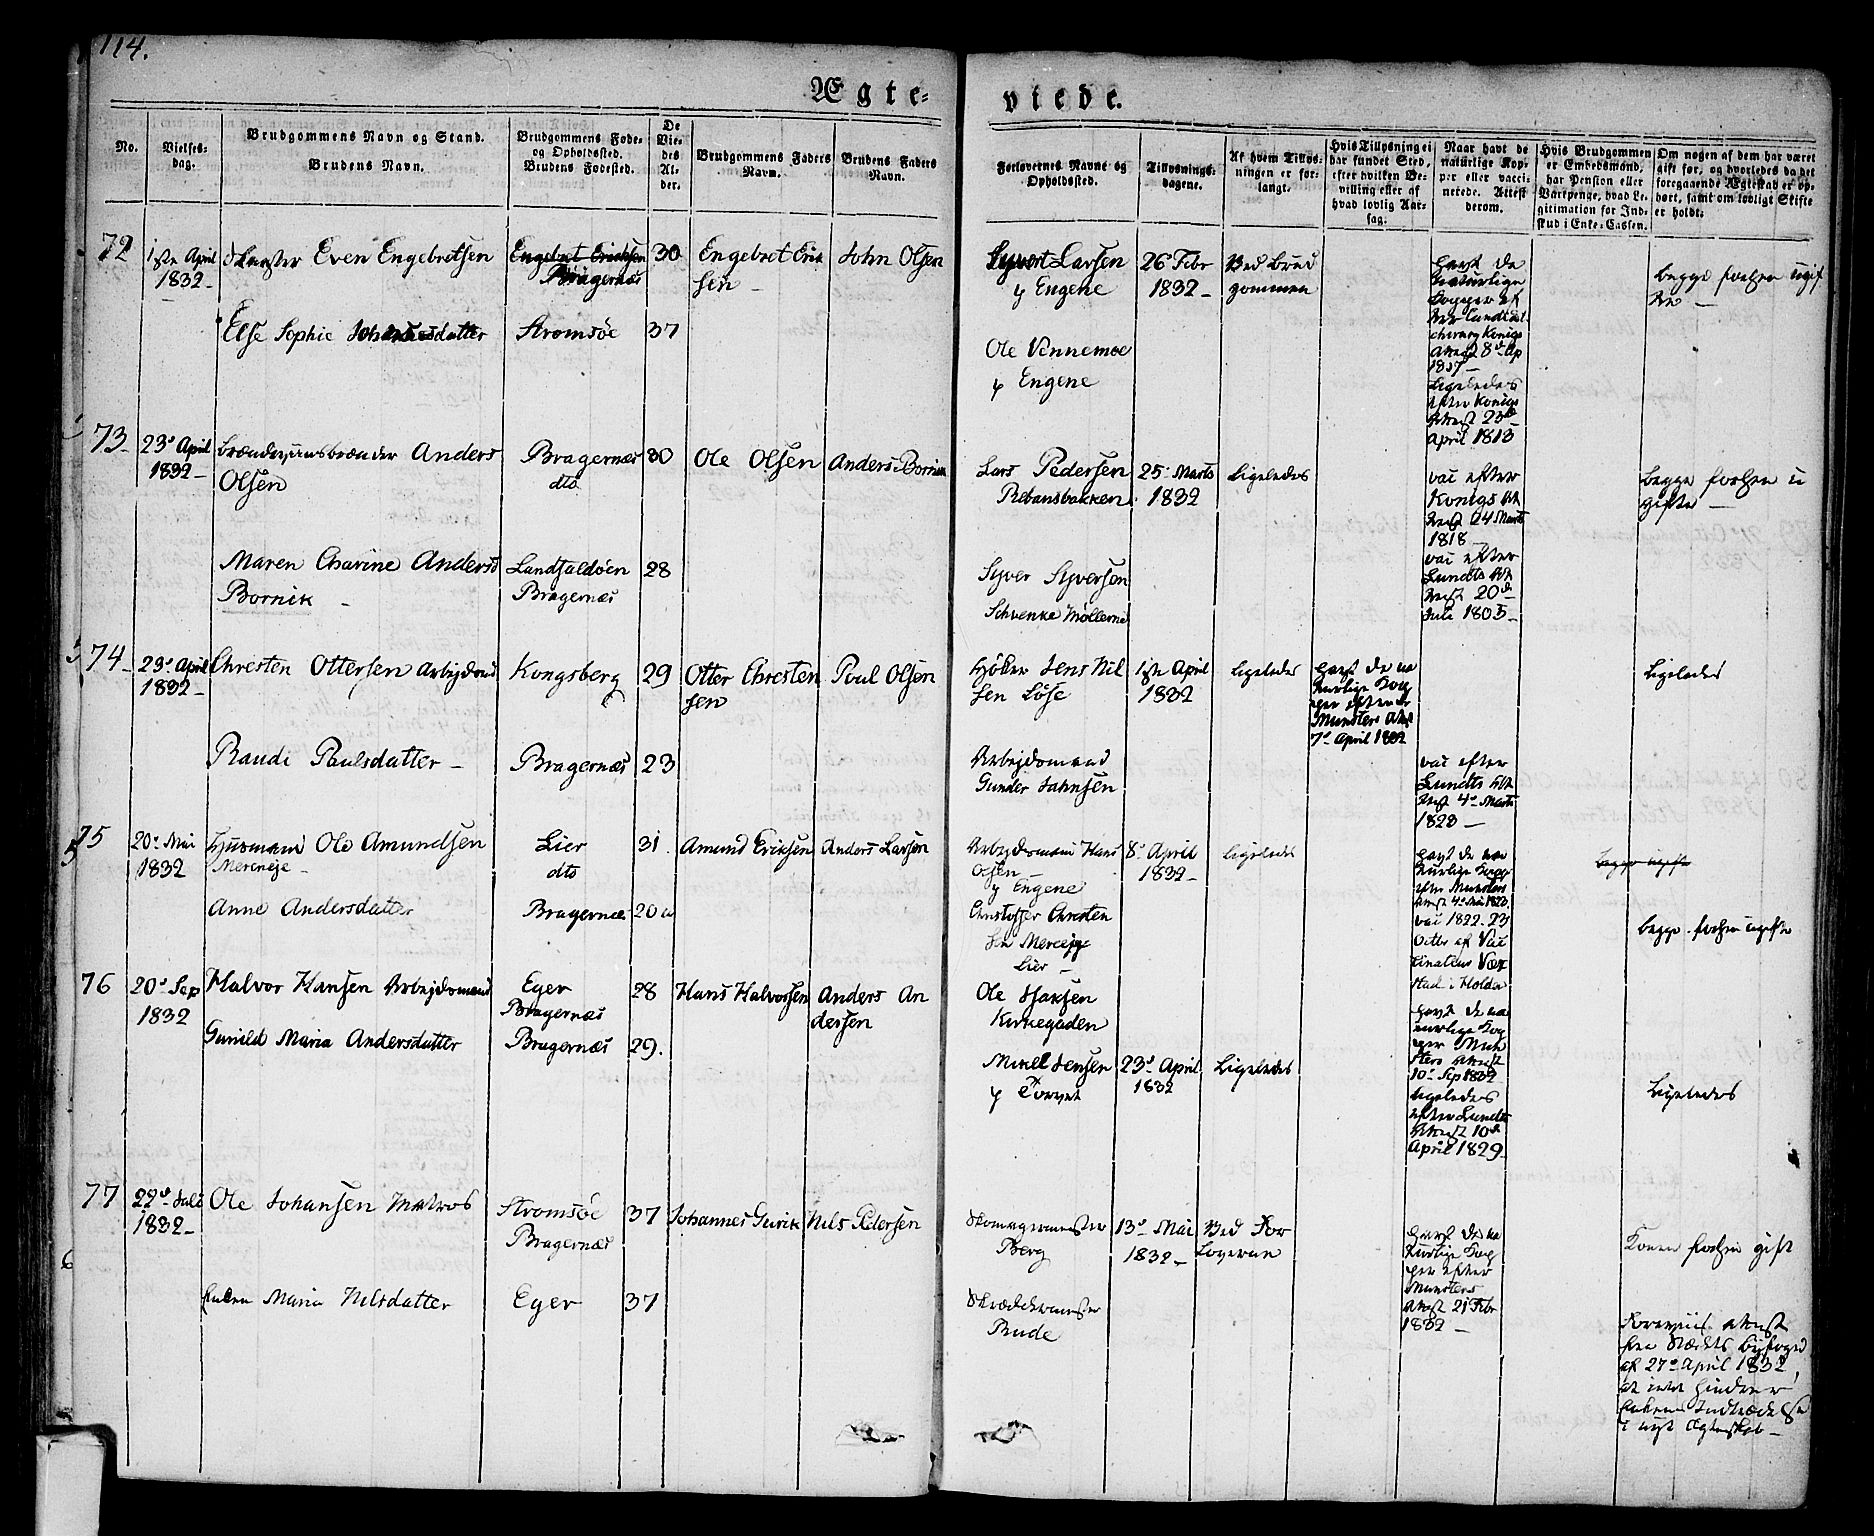 114.
Ægte=
viede.
No.
Vielses=
dag.
Brudgommens Navn og Stand.
Brudens Navn.
Brudgommens Føde=
og Opholdssted.
Brudens Fødested.
De
Vie=
des
Al=
der.
Brudgommens Faders
Navn.
Brudens Faders
Navn.
Forlovernes Navne og
Opholdssted.
Tillysnings=
dagene.
Af hvem Tillys=
ningen er for=
langt.
Hvis Tillysning ei
har fundet Sted,
efter hvilken Be=
villing eller af
hvad lovlig Aar=
sag.
Naar havt de
naturlige Kop=
per eller vacci=
nerede. Attest
derom.
Hvis Brudgommen
er Embedsmand,
har Pension eller
Vartpenge, hvad Le=
gitimation for Ind=
skud i Enke=Cassen.
Om nogen af dem har været
gift før, og hvorledes da det
foregaaende Ægteskab er op=
hørt, samt om lovligt Skifte
er holdt.
72
1ste April
1832
Even Engebretsen
Engebret Ericksen
Bragernæs
30
Engebret Erik
sen
John Olsen
Syvert Larsen
y Engene
26 Febr
1832
Ved Brud
gommen
havt de
naturlige
Kopper ef
ter Lundts
Kongs
Attest 8de Ap
1807
begge forhen ugif
te
Else Sophie Johannesdatter
Stromsöe
37
Ole Vennemoe
y Engene
Ligeledes
efter Konigs
Attest 23de
April 1813
73
23de April
1832
Anders
Olsen
Bragernæs
dto
30
Ole Olsen
Anders Bornik
Lars Pedersen
Rebansbakken
25 Marts
1832
Ligeledes
vac efter
Konigs At
test 24 Marts
1818
Begge forhen u
gifte
Maren Chavine Andersd
Bornik
Landfaldöen
Bragernæs
28
Syver Syversen
Schvenke Møllerne
vac efter
Lundts At
test 20de
Juli 1805
74
23de April
1832
Chresten Ottersen Arbejdsmd
Kongsberg
29
Otter Chresten
sen
Poul Olsen
Høker Jens Nil
sen Løse
1ste April
1832
Ligeledes
havt de na
turlige Kop
per efter
Munsters Att
7de April 1832
Ligeledes
Randi Paulsdatter
Bragernæs
23
Arbejdsmand
Gunder Jahnsen
vac efter
Lundts At
test 4de Marts
1823
75
20de Mai
1832
Husmand Ole Amundsen
Mereneje
Lier
dto
31
Amund Eriksen
Anders Larsen
Arbejdsmand Hans
Olsen
y Engene
8de April
1832
Ligeledes
havt de na
turlige Kopp
efter Munsters
Attest 4de Mai 1832
begge ugift
Anne Andersdatter
Bragernæs
20
Christoffer Chresten
sen Mereje
Lier
vac 1822. 23
Octbr
begge forhen ugifte
76
20de Sep
1832
Halvor Hansen Arbejdsmand
Eger
Bragernæs
28
Hans Halvorsen
Anders An
dersen
Ole Isaksen
Kirkegaden
havt de na
turlige Kop
per Mun
sters Attest
10de Sep 1832
Gunild Maria Andersdatter
Bragernæs
29.
Mikel Jensen
y Torvet
23de April
1832
Ligeledes
Ligeledes
efter Lundts
Attest 10de
April 1829
Ligeledes
77
22de Juli
1832
Ole Johansen Matros
Stromsöe
Bragernæs
37
Johannes Gurik
Nils Pedersen
Skomagermester
Berg
13de Mai
1832
Ved For
loveren
havt de na
turlige Kop
per efter
Munsters
Attest 21 Febr
1832
Konen forhen gift
Enken Maria Nilsdatter
Eger
37
Skræddermester
Rude
Foreviist Attest
fra Stædets Byfoged
af 27de April 1832,
at intet hindrer
Enkens Indtrædelse
i nyt Egteskab